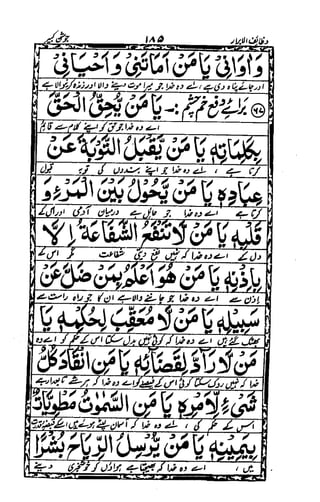 وظائف الابرار ۱۸۵ جوشن کبیر
وَاٰوَانِیْ یَا مَنْ اَمَاتَنِیْ وَاَحْیَانِیْ
اور جائے پناہ دی ہے، اے وہ خدا جو میرا موت دینے والا اور زندہ کرنیوالا ہے
(۶۷) برائے دفع خم چشم:- یَا مَنْ یُحِقُّ الْحَقَّ
اے وہ خدا جو حق کو اپنے کلام سے قائم
بِکَلِمَاتِهٖ یَا مَنْ یَقْبَلُ التَّوْبَةَ عَنْ
کرتا ہے، اے وہ خدا جو اپنے بندوں کی توبہ قبول
عِبَادِهٖ یَا مَنْ یَحُوْلُ بَیْنَ الْمَرْءِ وَ
کرتا ہے اے وہ خدا جو حائل ہے درمیان آدمی اور اس کے
قَلْبِهٖ یَا مَنْ لَا تَنْفَعُ الشَّفَاعَةُ اِلَّا
دل کے اے وہ خدا کہ نہیں نفع دیتی شفاعت مگر اس کے
بِاِذْنِهٖ یَا مَنْ هُوَ اَعْلَمُ بِمَنْ ضَلَّ عَنْ
اذن سے اے وہ خدا جو جاننے والا ہے ان کا جو راہ راست سے
سَبِیْلِهٖ یَا مَنْ لَا مُعَقِّبَ لِحُکْمِهٖ یَا
بھٹک گئے ہیں، اے وہ خدا کہ کوئی نہیں بدل سکتا اس کے حکم کو اے وہ
مَنْ لَا رَادَّ لِقَضَائِهٖ یَا مَنِ انْقَادَ کُلُّ
خدا کہ نہیں روک سکتا کوئی اس کے فیصلے کو اے وہ خدا کہ ہر شے تابعدار ہے
شَیْءٍ لِاَمْرِهٖ یَا مَنِ السَّمٰوٰتُ مَطْوِیَّاتٌ
اس کے حکم کی، اے وہ خدا کہ آسمان لپٹے ہوئے ہیں اسکے قبضہ قدرت
بِیَمِیْنِهٖ یَا مَنْ یُرْسِلُ الرِّیَاحَ بُشْرًا
میں، اے وہ خدا کہ بھیجتا ہے ہواؤں کو خوشخبری دینے